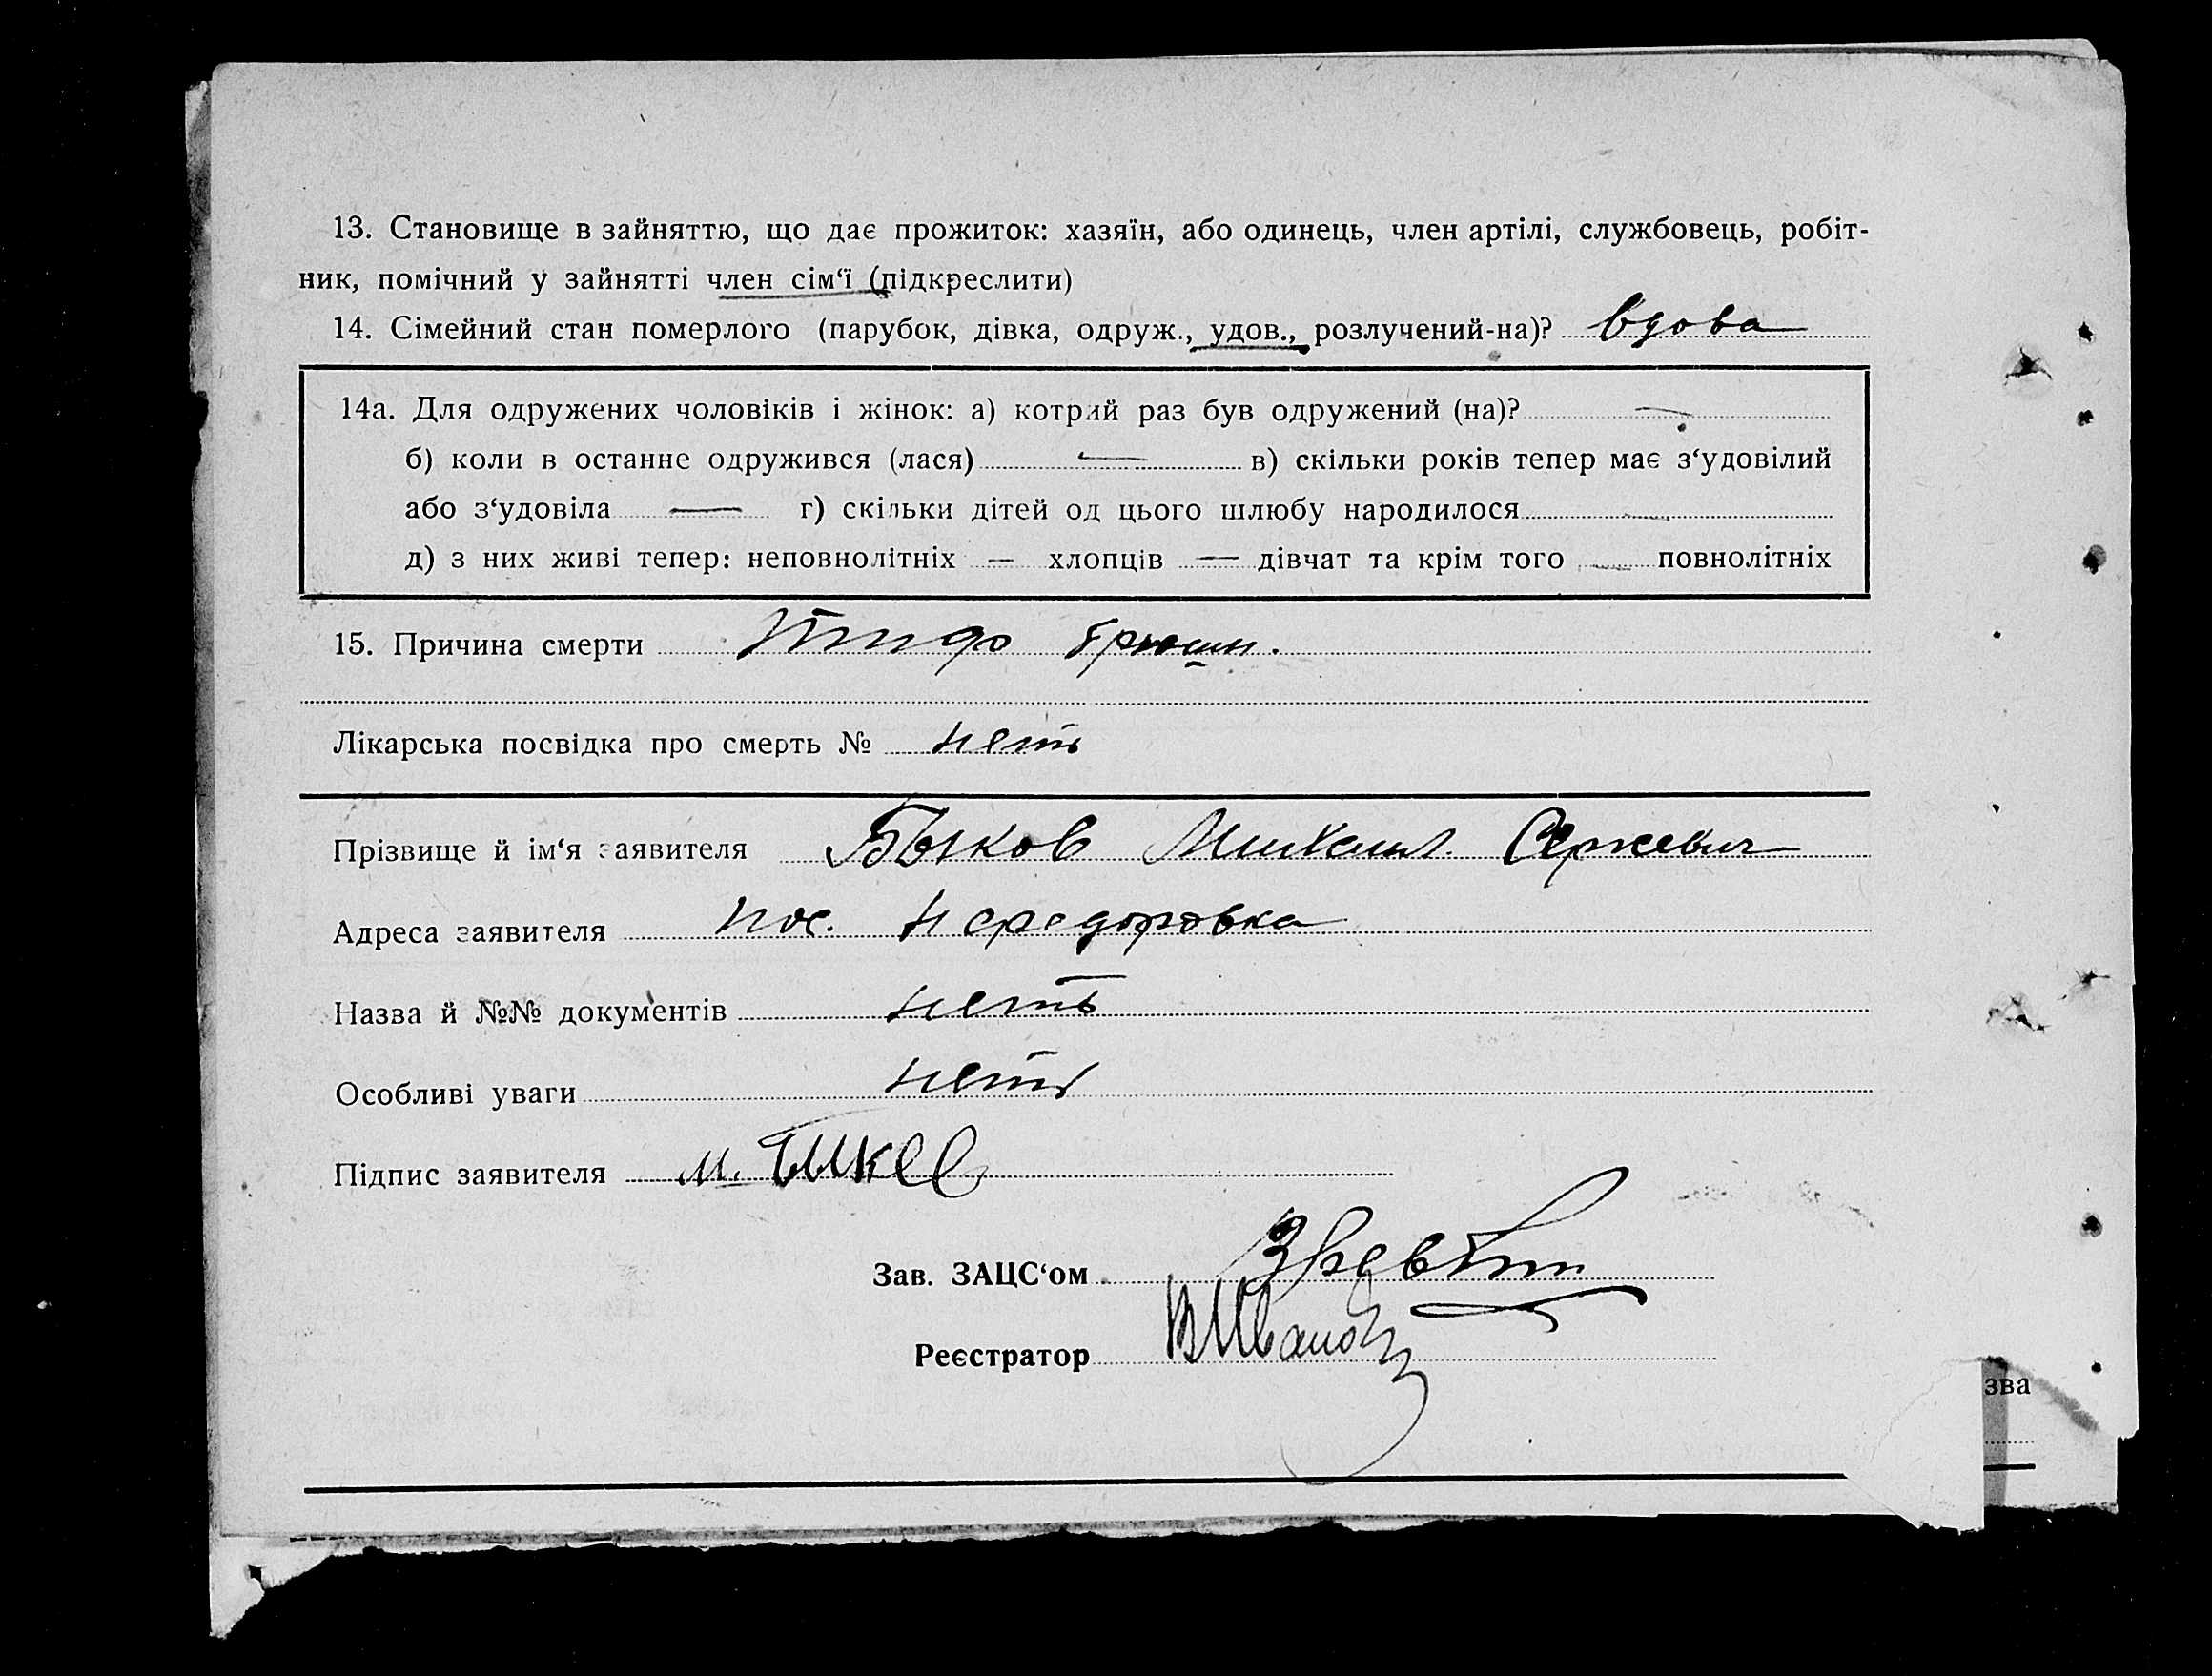 13. Становище в зайняттю, що дає прожиток: хазяїн, або одинець, член артілі, службовець, робіт-
ник, помічний у зайнятті член сім‘ї (підкреслити)
14. Сімейний стан померлого (парубок, дівка, одруж., удов., розлучений-на)? вдова
14а. Для одружених чоловіків і жінок: а) котрий раз був одружений (на)? —
б) коли в останне одружився (лася) — в) скільки років тепер має з‘удовілий
або з‘удовіла — г) скільки дітей од цього шлюбу народилося —
д) з них живі тепер: неповнолітніх — хлопців — дівчат та крім того — повнолітніх
15. Причина смерти
Лікарська посвідка про смерть № неть
Прізвище й ім‘я заявителя Быков Михаил
Адреса заявителя пос.
Назва й №№ документів неть
Особливі уваги неть
Підпис заявителя М.
Зав. ЗАЦС‘ом
Реєстратор
зва